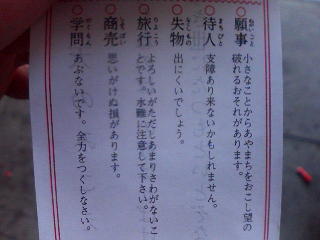 ○願事 小さなことからあやまちをおこし望の
破れるおそれがあります。
○待人 支障あり来ないかもしれません。
○失物 出にくいでしょう。
○旅行 よろしいがただしあまりさわがないこ
とです。水難に注意して下さい。
○商売 思いがけぬ損があります。
○学問 あぶないです。全力をつくしなさい。